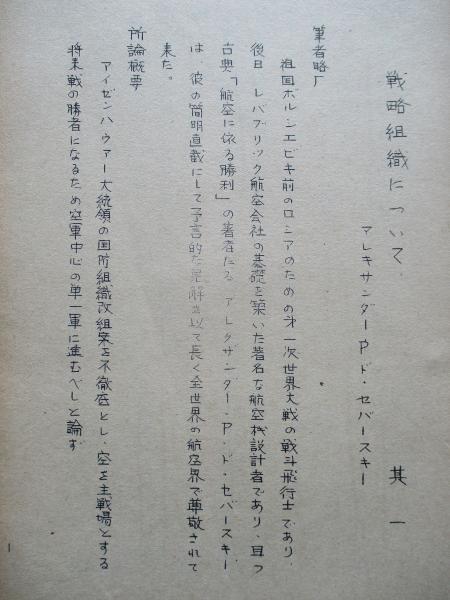 戦略組織について、　其一
アレキサンダーP ド・セバースキー
筆者略厂
祖国ボルシエビキ前のロシアのための才一次世界大戦の戦斗飛行士であり、
後日、レパブリック航空会社の基礎を築いた著名な航空机設計者であり、且つ
古典「航空に依る勝利」の著者たる アレクサンダー・P・ド・セバースキー
は、彼の簡明直截にして予言的な見解を以て長く全世界の航空界で尊敬されて
来た。
所論概要
アイゼンハウアー大統領の国防組織改組案を不徹底とし、空を主戦場とする
将来戦の勝者になるため空軍中心の単一軍に進むべしと論ず